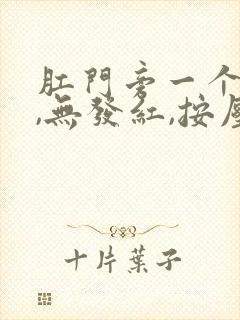 肛門旁一个
,無發紅,按
十片葉子